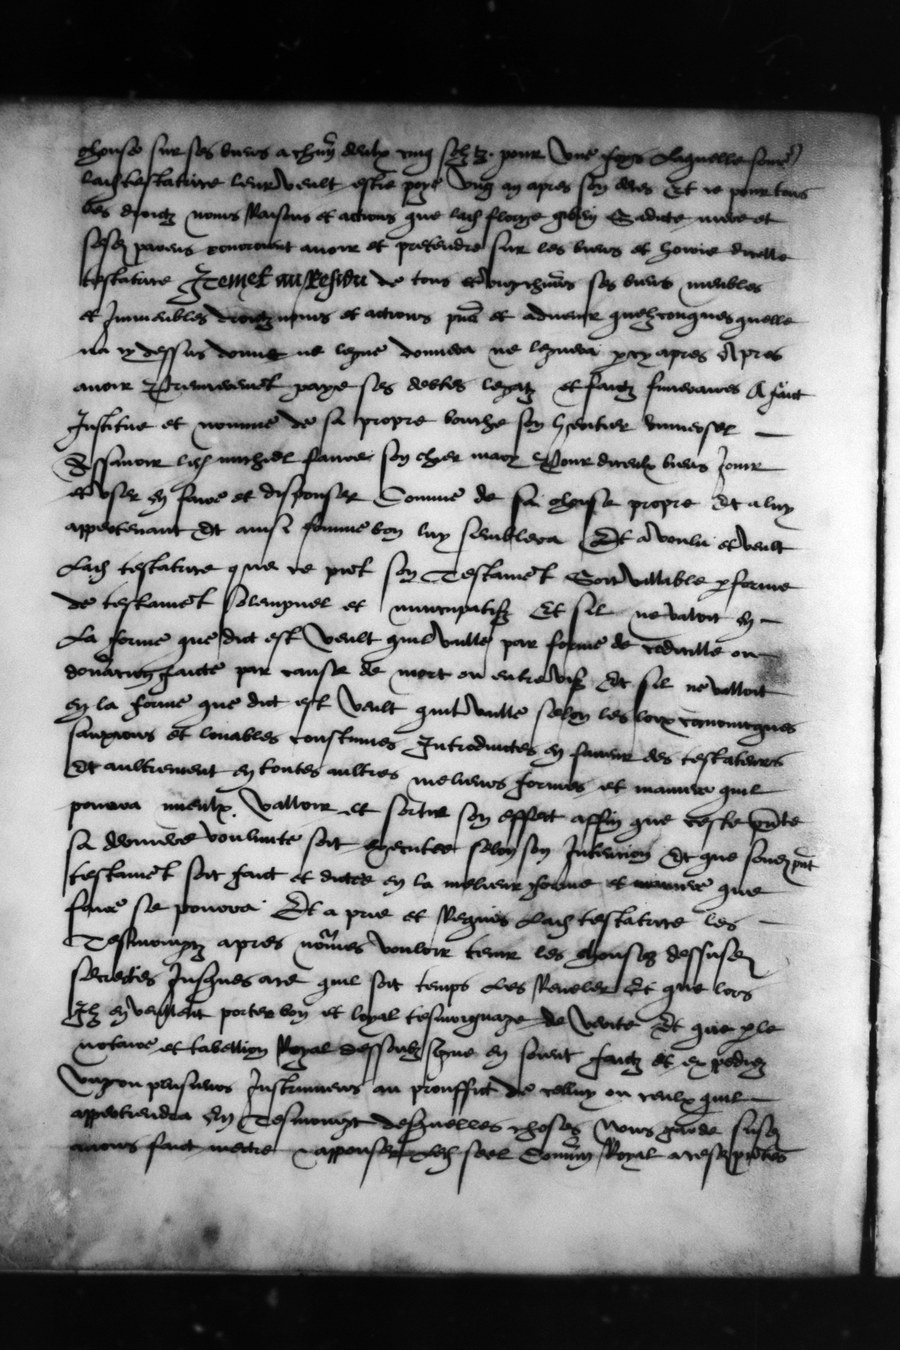 chouse sur ses biens a chun deulx cinq solz tz. pour une foys Laquelle some
lad testatrice leur veult estre poye ung an apres son deces Et ce pour tous
les droictz noms Raisons et actions que lad
parens pourroient avoir et pretendre sur les biens et hoirie dicelle
testatrice Item et au Residu de tous et ses biens meubles
et Immeubles droictz noms et actions pns et advenir quelzconques quelle
na cy dessus donne ne legue donnera ne leguera cy apres Apres
avoir premierement paye ses debtes legatz et fraictz funeraires A faict
Institue et nomme de sa propre bouche son heritier universel
Assavoir led michiel son chier mary Pour diceulx biens Jouir
et user en faire et disposer Comme de sa chouse propre Et a luy
appertenant Et ainsi comme bon luy semblera Et a voulu et veult
Lad testatrice que ce pnt son Testament Soit vallable p forme
de testament solempnel et nuncupatif Et sil ne valoit en
La forme que dict est Veult quil vaille par forme de codicille ou
donation faicte par cause de mort ou entre vifz Et sil ne valloit
en la forme que dict est veult quil vaille selon les loix canonicques
sanxions et louables coustumes Introduictes en faveur des testateurs
Et aultrement en toutes aultres melieurs formes et maniere quil
pourra mieulx valloir et sortir son effect affin que ceste pnte
sa derniere voulunte soit executee selon son Intention Et que pnt
testament soit faict et dicte en la melieur forme et maniere que
faire se pourra Et a prie et Requis Lad testatrice les
Tesmoingtz apres nommes vouloir tenir les chouses dessusd
secretes Jusques a ce quil soit temps Les Reveler Et que lors
Ilz en veulent porter bon et loyal tesmoignage de verite Et que p le
notaire et tabellion Royal dessoubz signe en soient faictz et expediez
ung ou plusieurs Instrumens au prouffict de celluy ou ceulx quil
appertiendra En Tesmoingt desquelles choses Nous garde susd
avons faict mectre led seel Commun Royal a cesd pntes